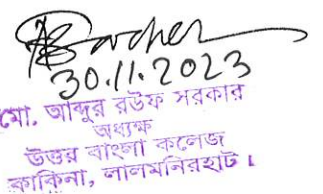 30.11.2023
মো. আব্দুর রউফ সরকার
অধ্যক্ষ
উত্তর বাংলা কলেজ
কাকিনা, লালমনিরহাট।